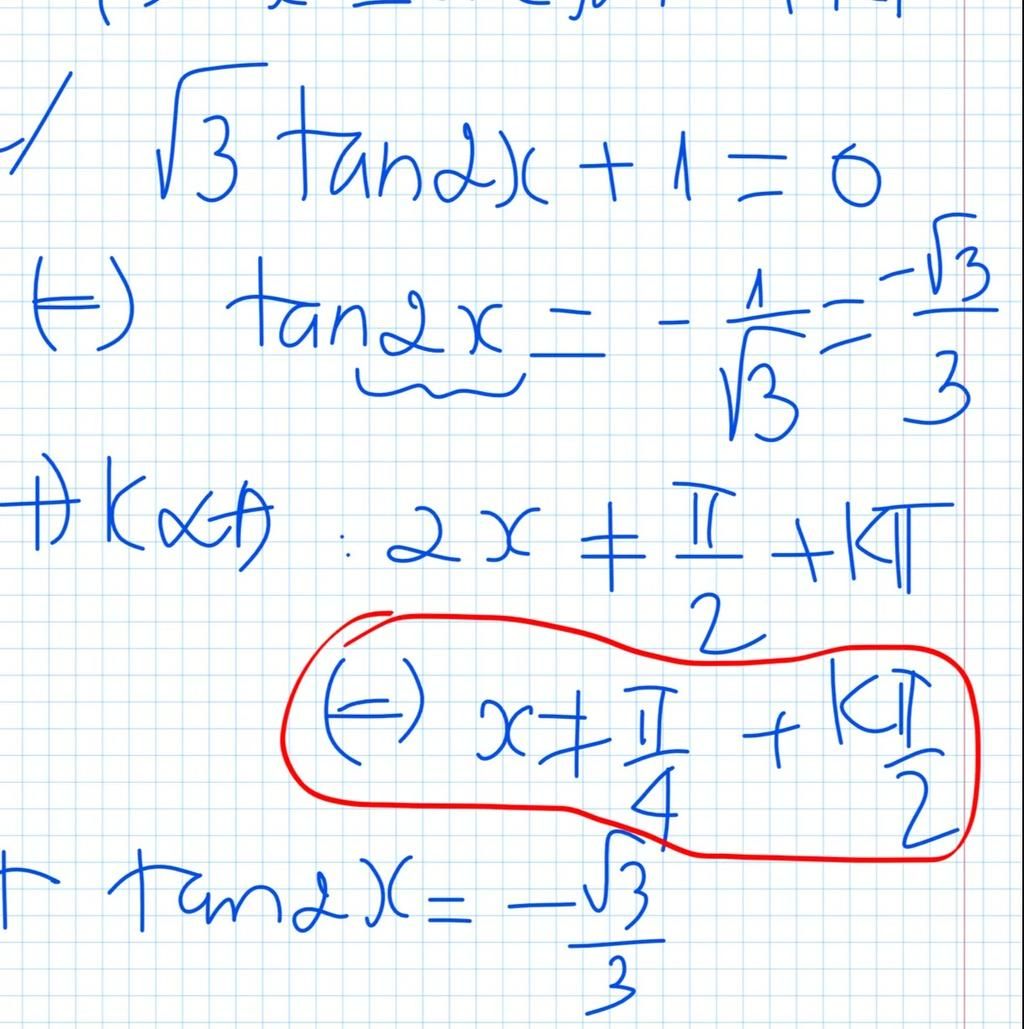 √3 tan2x + 1 = 0
(=) tan2x = - 1/√3 = -√3/3
+) ĐKXĐ : 2x ≠ π/2 + kπ
(=) x ≠ π/4 + kπ/2
+ tan2x = -√3/3